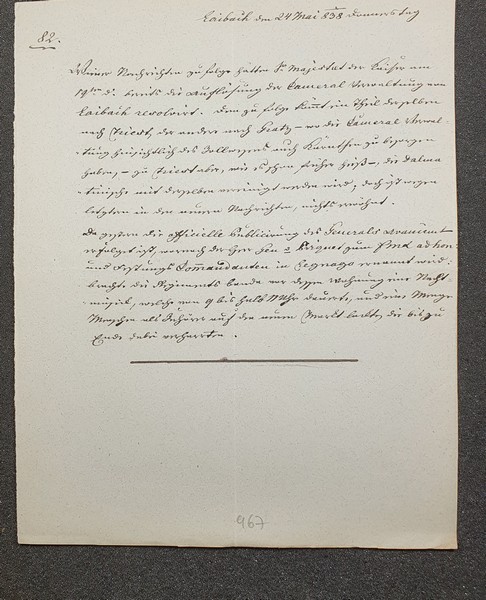 Laibach den 24 Mai 838 Donnerstag
82.
Wiener Nachrichten zu folge hätten Sr. Majestät der Kaiser am
19ten d. bereits die Auflösung der Cameral Verwaltung von
Laibach resolvirt. Dem zu folge kommt ein Theil derselben
nach Triest, der andere nach Gratz – wo die Cameral Verwal-
tung hinsichtlich des Zollwesens auch Kärnthen zu besorgen
haben, – zu Triest aber, wie es schon früher hieß –, die Dalma
tinische mit derselben vereinigt werden wird, doch ist wegen
letztern in den neuern Nachrichten, nichts erwähnt.
Da gestern die officielle Publicirung des Generals Avancement
erfolget ist, wornach der Herr Gen: zum Fml. ad hon:
und Festungs Comandanten in Legnago ernannt wird:
brachte die Regiments banda vor dessen Wohnung eine Nacht-
musick, welche von 9 bis halb 11 Uhr dauerte, und eine Menge
Menschen als Zuhörer auf den neuen Markt lockte, die bis zu
Ende dabei verharrten.
967